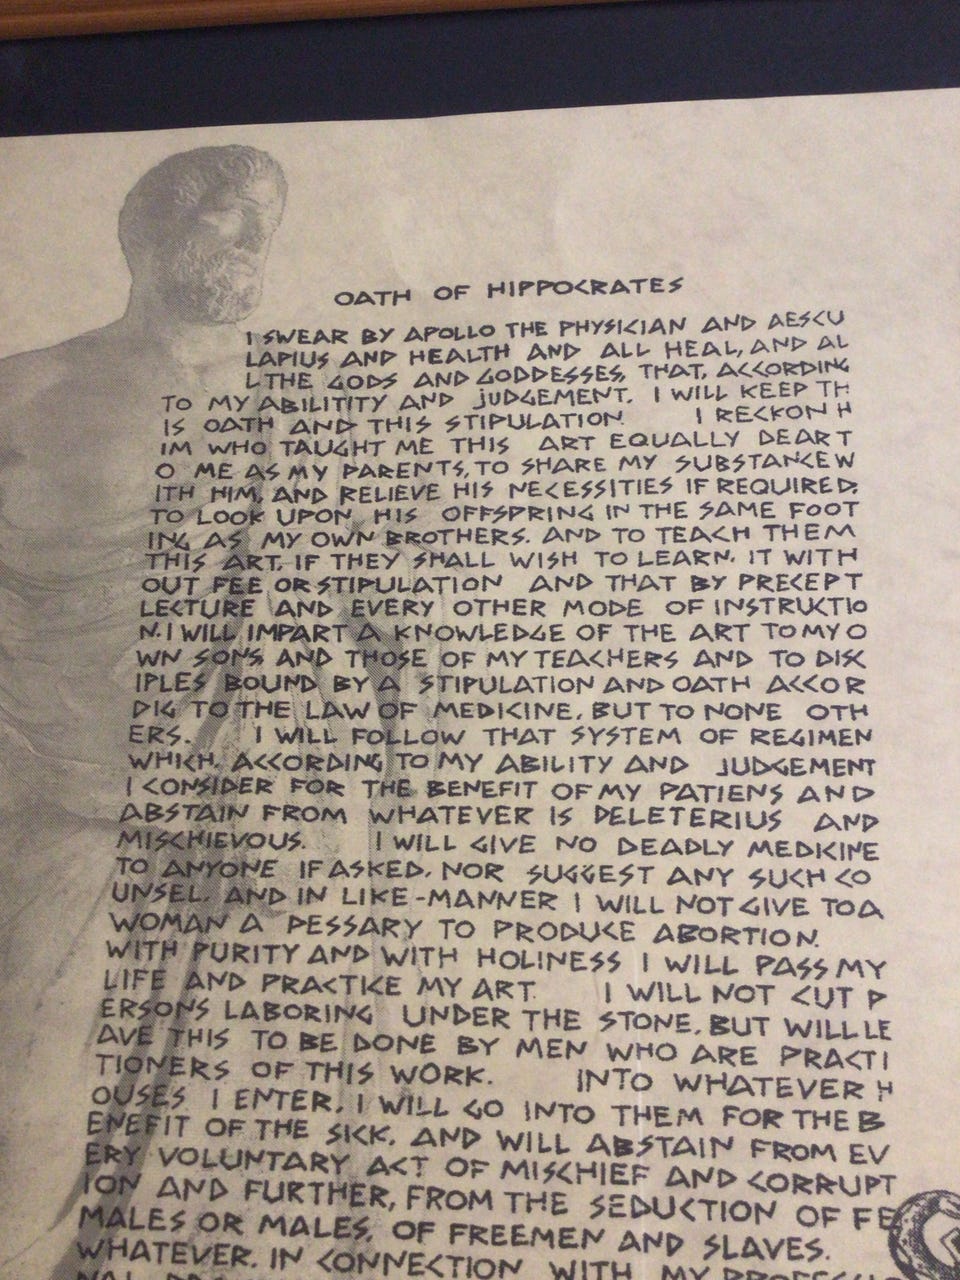 OATH OF HIPPOCRATES
I SWEAR BY APOLLO THE PHYSICIAN AND AESCU
LAPIUS AND HEALTH AND ALL HEAL, AND AL
L THE GODS AND GODDESSES, THAT, ACCORDING
TO MY ABILITITY AND JUDGEMENT, I WILL KEEP TH
IS OATH AND THIS STIPULATION. I RECKON H
IM WHO TAUGHT ME THIS ART EQUALLY DEAR T
O ME AS MY PARENTS, TO SHARE MY SUBSTANCE W
ITH HIM, AND RELIEVE HIS NECESSITIES IF REQUIRED;
TO LOOK UPON HIS OFFSPRING IN THE SAME FOOT
ING AS MY OWN BROTHERS, AND TO TEACH THEM
THIS ART, IF THEY SHALL WISH TO LEARN. IT WITH
OUT FEE OR STIPULATION AND THAT BY PRECEPT
LECTURE AND EVERY OTHER MODE OF INSTRUCTIO
N. I WILL IMPART A KNOWLEDGE OF THE ART TO MY O
WN SONS AND THOSE OF MY TEACHERS AND TO DISC
IPLES BOUND BY A STIPULATION AND OATH ACCOR
DIG TO THE LAW OF MEDICINE, BUT TO NONE OTH
ERS. I WILL FOLLOW THAT SYSTEM OF REGIMEN
WHICH, ACCORDING TO MY ABILITY AND JUDGEMENT
I CONSIDER FOR THE BENEFIT OF MY PATIENS AND
ABSTAIN FROM WHATEVER IS DELETERIUS AND
MISCHIEVOUS. I WILL GIVE NO DEADLY MEDICINE
TO ANYONE IF ASKED, NOR SUGGEST ANY SUCH CO
UNSEL, AND IN LIKE-MANNER I WILL NOT GIVE TO A
WOMAN A PESSARY TO PRODUCE ABORTION.
WITH PURITY AND WITH HOLINESS I WILL PASS MY
LIFE AND PRACTICE MY ART. I WILL NOT CUT P
ERSONS LABORING UNDER THE STONE, BUT WILL LE
AVE THIS TO BE DONE BY MEN WHO ARE PRACTI
TIONERS OF THIS WORK. INTO WHATEVER H
OUSES I ENTER, I WILL GO INTO THEM FOR THE B
ENEFIT OF THE SICK, AND WILL ABSTAIN FROM EV
ERY VOLUNTARY ACT OF MISCHIEF AND CORRUPT
ION AND FURTHER, FROM THE SEDUCTION OF FE
MALES OR MALES, OF FREEMEN AND SLAVES.
WHATEVER, IN CONNECTION WITH MY